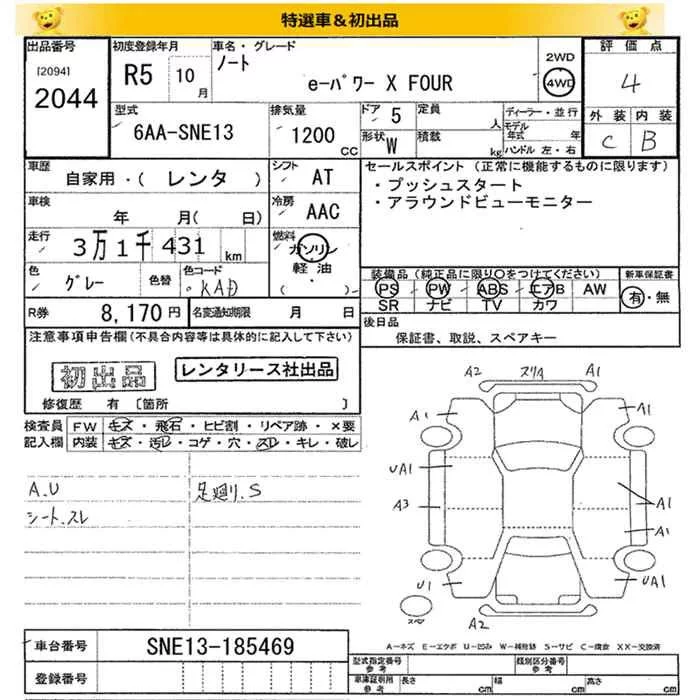 特選車&初出品
出品番号
[2094]
2044
初度登録年月
R5 10月
車名・グレード
ノート
e-パワー X FOUR
2WD
4WD
評価点
4
外装 内装
C B
型式
6AA-SNE13
排気量
1200 CC
ドア 5
形状 W
定員 人
積載 kg
ディーラー・並行
モデル年式 年
ハンドル 左・右
車歴
自家用・( レンタ )
シフト AT
車検
年 月( 日)
冷房 AAC
走行
3万1千431 km
燃料
ガソリン
軽油
( )
色 グレー 色替
色コード KAD
R券 8,170円
名変通知期限 月 日
セールスポイント (正常に機能するものに限ります)
・プッシュスタート
・アラウンドビューモニター
装備品 (純正品に限り○をつけてください)
PS PW ABS エアB AW
SR ナビ TV カワ
新車保証書
有・無
後日品
保証書、取説、スペアキー
注意事項申告欄(不具合内容等は具体的に記入して下さい)
初出品
レンタリース社出品
修復歴 有 〔箇所 〕
検査員記入欄
FW キズ・飛石・ヒビ割・リペア跡・×要
内装 キズ・汚レ・コゲ・穴・スレ・キレ・破レ
A.U
シート.スレ
足廻り.S
A2 スリA A1
A1 A1
UA1
A3 A1
A1
U1 UA1
A2
A-キズ E-エクボ U-凹み W-補修跡 S-サビ C-腐食 XX-交換済
車台番号 SNE13-185469
登録番号
型式指定番号 参考
類別区分番号 参考
車庫証明用 参考
長さ cm 幅 cm 高さ cm